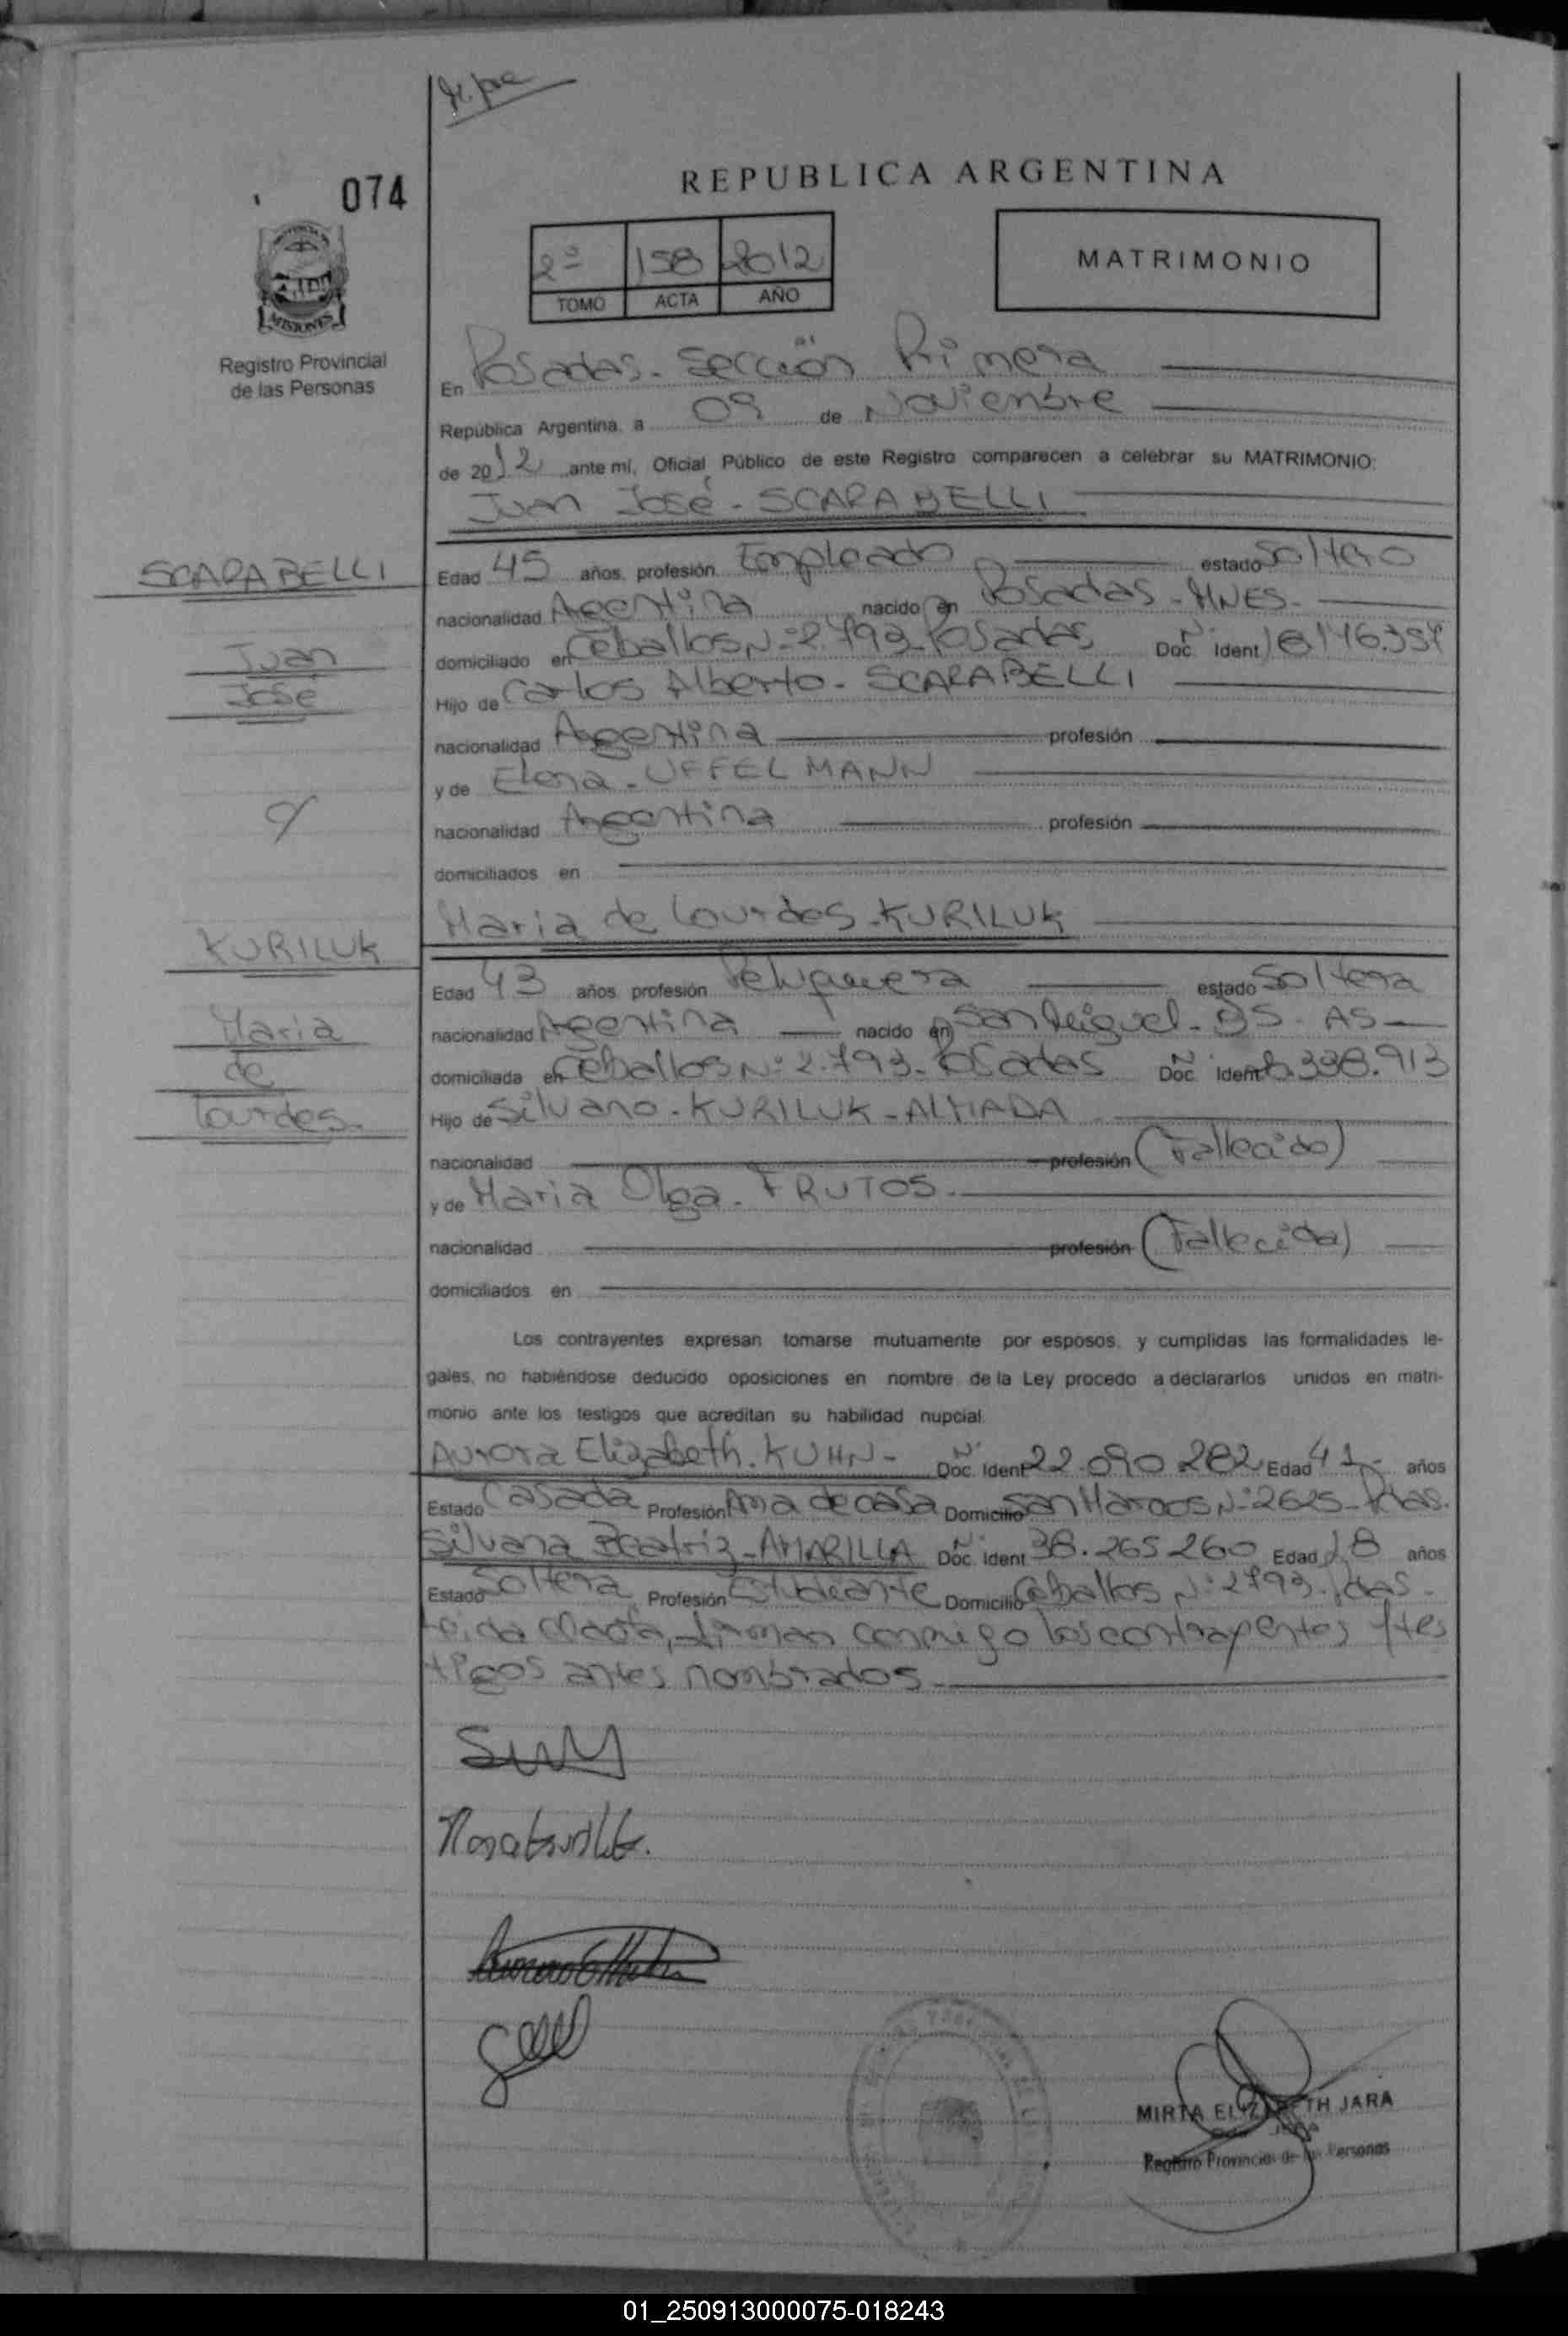 074
REPUBLICA ARGENTINA
2º 158 2012
TOMO ACTA AÑO
MATRIMONIO
MISIONES
Registro Provincial
de las Personas
En Posadas - Sección Primera
República Argentina, a 09 de Noviembre
de 2012 ante mí, Oficial Público de este Registro comparecen a celebrar su MATRIMONIO:
Juan José - SCARABELLI
SCARABELLI
Juan
José
Edad 45 años, profesión Empleado estado Soltero
nacionalidad Argentina nacido en Posadas - MNES -
domiciliado en Ceballos Nº 2.793 - Posadas Doc. Nº Ident 18.146.357
Hijo de Carlos Alberto - SCARABELLI
nacionalidad Argentina profesión
y de Elena - UFFELMANN
nacionalidad Argentina profesión
domiciliados en
y
Maria de Lourdes - KURILUK
KURILUK
Maria
de
Lourdes -
Edad 43 años profesión Peluquera estado Soltera
nacionalidad Argentina nacido en San Miguel - BS - AS -
domiciliada en Ceballos Nº 2.793 - Posadas Doc. Nº Ident 338.913
Hijo de Silvano - KURILUK - ALMADA
nacionalidad profesión (Fallecido)
y de Maria Olga - FRUTOS -
nacionalidad profesión (Fallecida)
domiciliados en
Los contrayentes expresan tomarse mutuamente por esposos, y cumplidas las formalidades le-
gales, no habiéndose deducido oposiciones en nombre de la Ley procedo a declararlos unidos en matri-
monio ante los testigos que acreditan su habilidad nupcial.
Aurora Elizabeth - KUHN - Doc. Nº Ident 22.090.282 Edad 41 - años
Estado Casada Profesión Ama de casa Domicilio San Marcos Nº 2625 - Pdas.
Silvana Beatriz - AMARILLA Doc. Nº Ident 38.265.260 Edad 18 años
Estado Soltera Profesión Estudiante Domicilio Ceballos Nº 2793 - Pdas -
Leida el acta, firman conmigo los contrayentes y tes
tigos antes nombrados -
MIRTA ELIZABETH JARA
Registro Provincial de las Personas
01_250913000075-018243